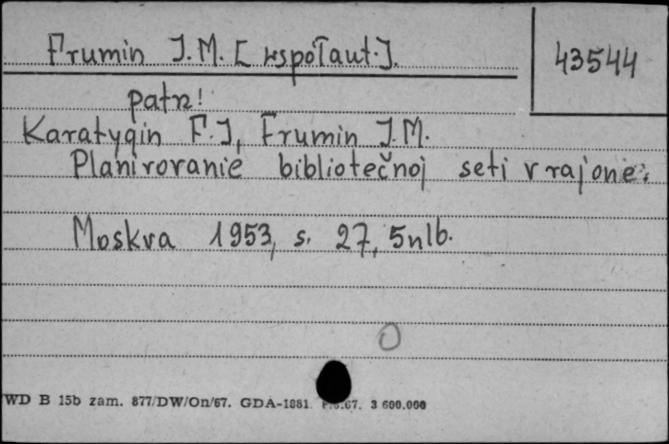 Frumin I.M. [współaut.].
43544
patrz!
Karatygin F.I, Frumin I.M.
Planirovanie bibliotečnoj seti v rajone.
Moskva 1953, s. 27, 5nlb.
WD B 15b zam. 877/DW/On/67. GDA-1881. 3 600.000